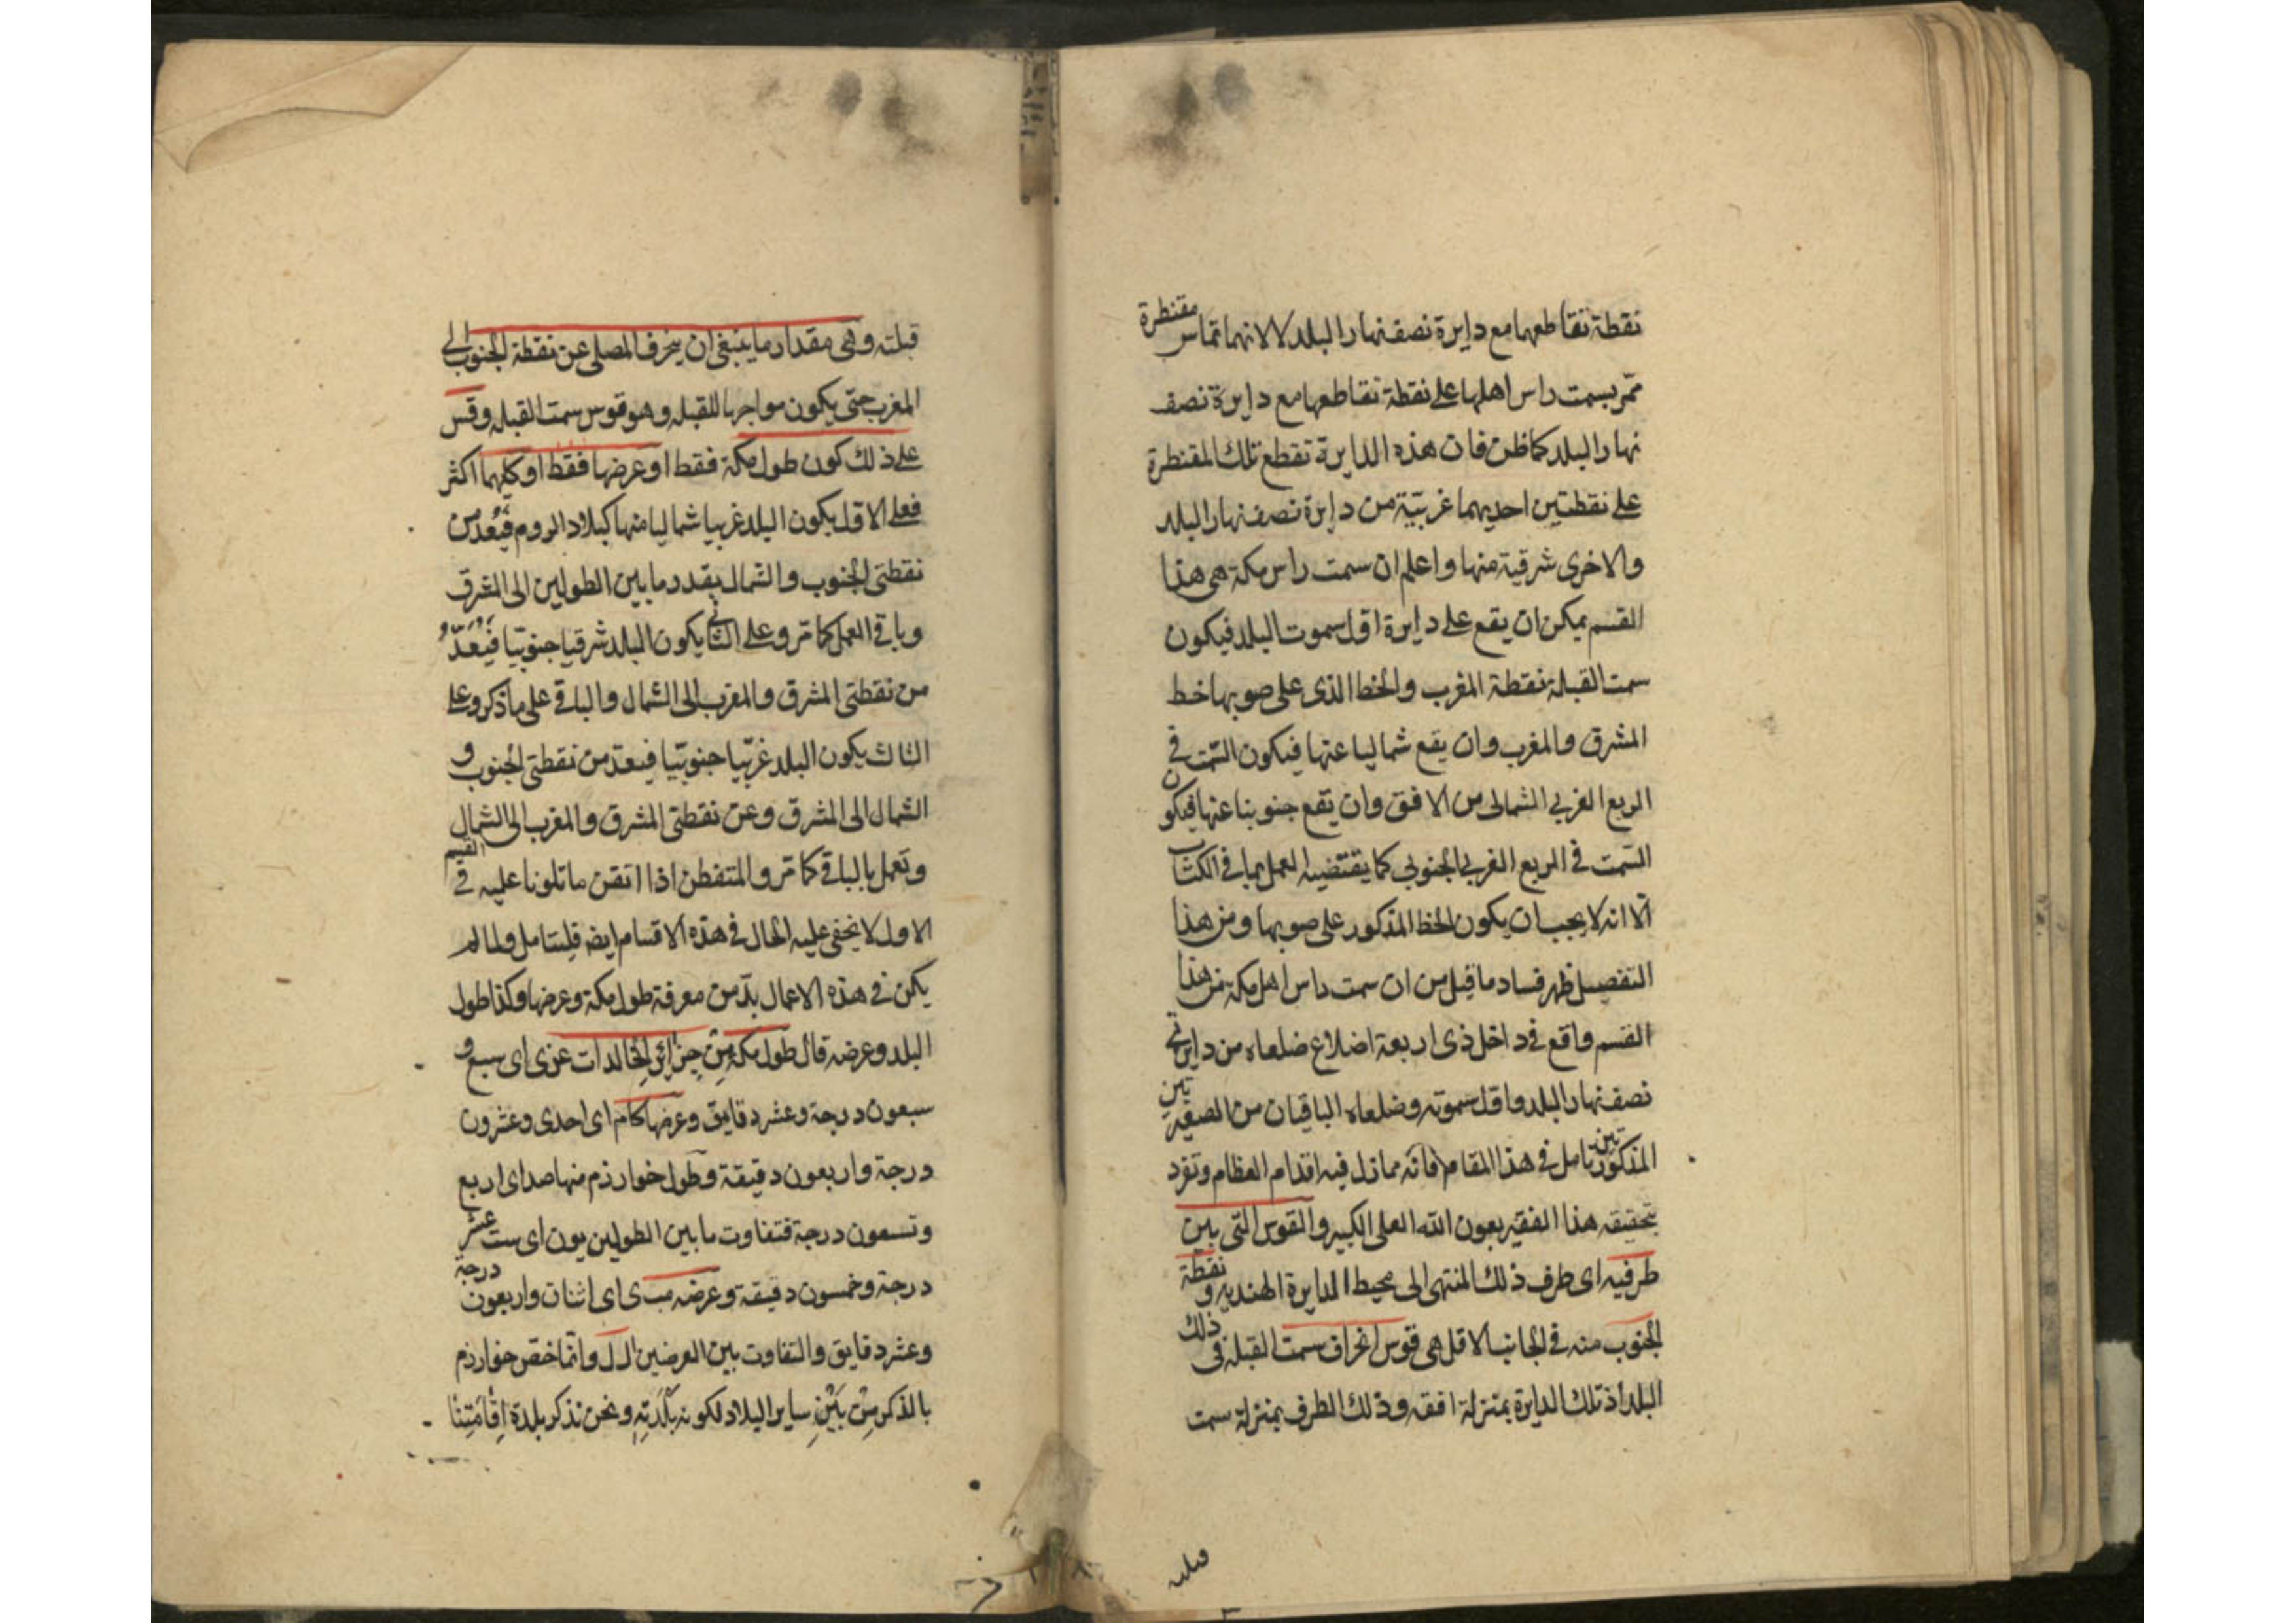 نقطة تقاطعها مع دايرة نصف نهار البلد لا لانهما تماس مقنطرة
تمر بسمت راس اهلها على نقطة تقاطعها مع دايرة نصف
نهار البلد كما ظن فان هذه الدايرة تقطع تلك المقنطرة
على نقطتين احديهما غربية من دايرة نصف نهار البلد
والاخرى شرقية منها واعلم ان سمت راس مكة هى هذا
القسم يمكن ان يقع على دايرة اول سموت البلد فيكون
سمت القبلة نقطة المغرب والخط الذى على صوبها خط
المشرق والمغرب وان يقع شماليا عنها فيكون السمت فى
الربع الغربي الشمالى من الافق وان يقع جنوبيا عنها فيكون
السمت فى الربع الغربي الجنوبي كما يقتضيه العمل بما فى الكتاب
الا انه لا يجب ان يكون الخط المذكور على صوبها ومن هذا
التفصيل ظهر فساد ما قيل من ان سمت راس اهل مكة من هذا
القسم واقع فى داخل ذى اربعة اضلاع ضلعاه من دايرتى
نصف نهار البلد واول سموته وضلعاه الباقيان من الصغيرتين
المذكورتين تامل فى هذا المقام فانه مما زل فيه اقدام العظام وتفرد
بتحقيقه هذا الفقير بعون الله العلى الكبير والقوس التى بين
طرفيه اى طرف ذلك المنتهى الى محيط الدايرة الهندية ونقطة
الجنوب منه فى الجانب الاقل هى قوس انحراف سمت القبلة فى ذلك
البلد اذ تلك الدايرة بمنزلة افقه وذلك الطرف بمنزلة سمت
قبلته
قبلته وهى مقدار ما ينبغى ان ينحرف المصلى عن نقطة الجنوب الى
المغرب حتى يكون مواجها للقبلة وهو قوس سمت القبلة وقس
على ذلك كون طول مكة فقط او عرضها فقط او كليهما اكثر
فعلى الاول يكون البلد غربيا شماليا منها كبلاد الروم فيعد من
نقطتى الجنوب والشمال بقدر ما بين الطولين الى المشرق
وباقى العمل كما مر وعلى الثانى يكون البلد شرقيا جنوبيا فيعد
من نقطتى المشرق والمغرب الى الشمال والباقى على ما ذكر وعلى
الثالث يكون البلد غربيا جنوبيا فيعد من نقطتى الجنوب و
الشمال الى المشرق وعن نقطتى المشرق والمغرب الى الشمال
وتعمل بالباقى كما مر والمتفطن اذا اتقن ما تلونا عليه فى القسم
الاول لا يخفى عليه الحال فى هذه الاقسام ايضا فليتامل ولما لم
يكن فى هذه الاعمال بد من معرفة طول مكة وعرضها وكذا طول
البلد وعرضه قال طول مكة من جزائر الخالدات عزى اى سبع و
سبعون درجة وعشر دقايق وعرضها كام اى احدى وعشرون
درجة واربعون دقيقة وطول خوارزم منها صد اى اربع
وتسعون درجة فتفاوت ما بين الطولين يون اى ست عشر
درجة وخمسون دقيقة وعرضه مب ى اى اثنان واربعون درجة
وعشر دقايق والتفاوت بين العرضين ك ل وانما خص خوارزم
بالذكر من بين ساير البلاد لكونه بلدته ونحن نذكر بلدة اقامتنا